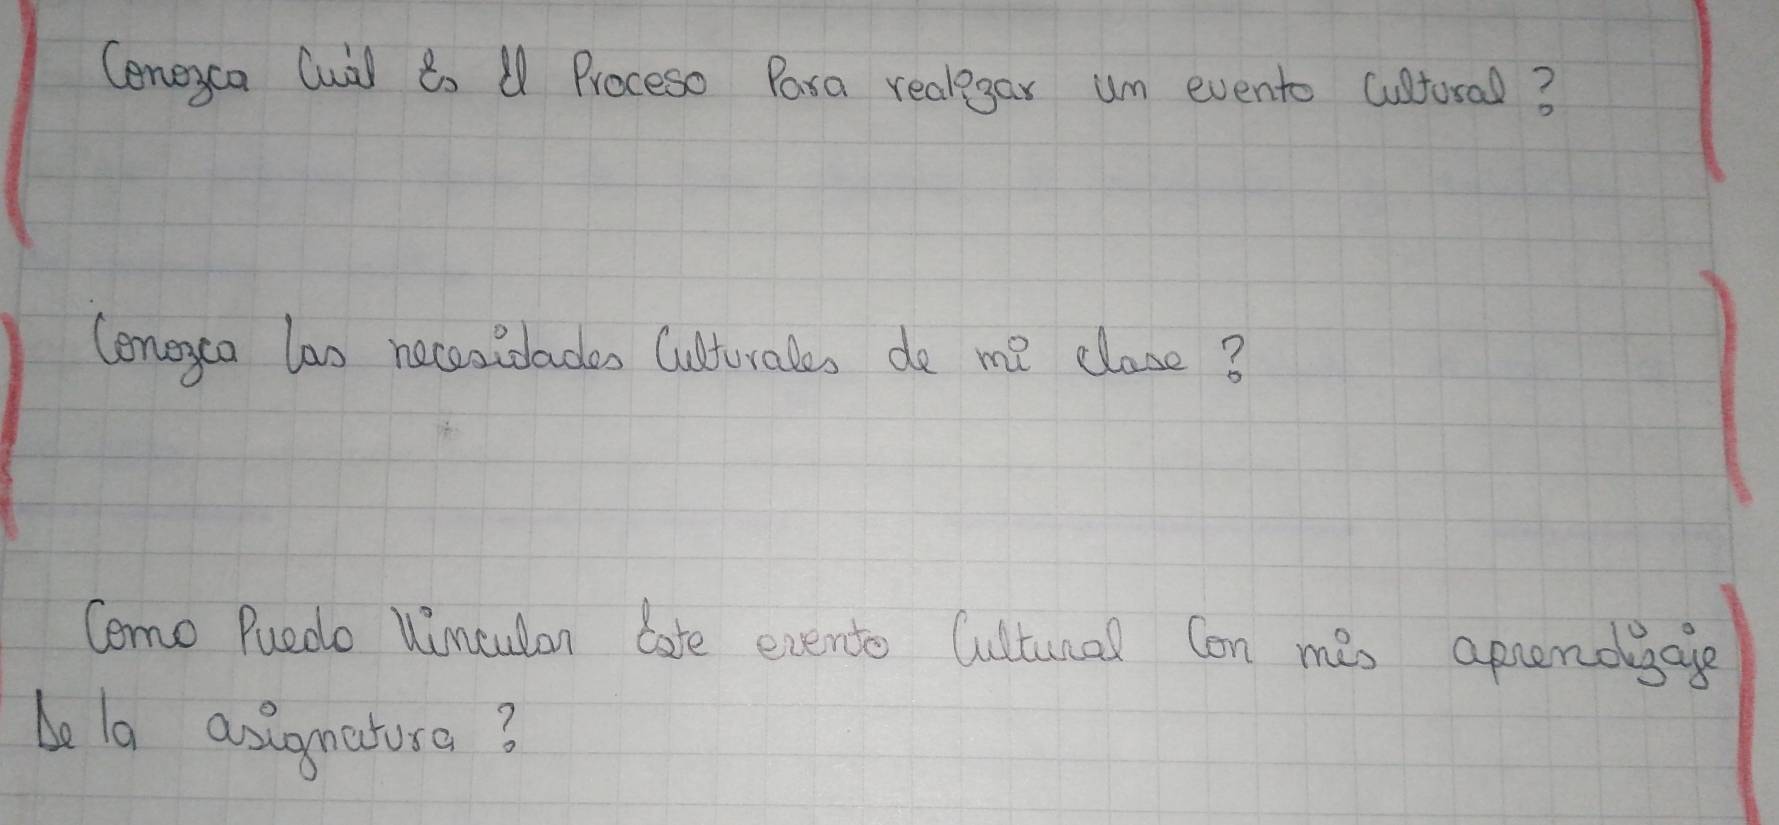 Conozca Cuál Es El Proceso Para realizar un evento Cultural?
Conozca las necesidades Culturales de mi clase?
Como Puedo Vincular Este evento Cultural Con mis aprendizaje
De la asignatura?